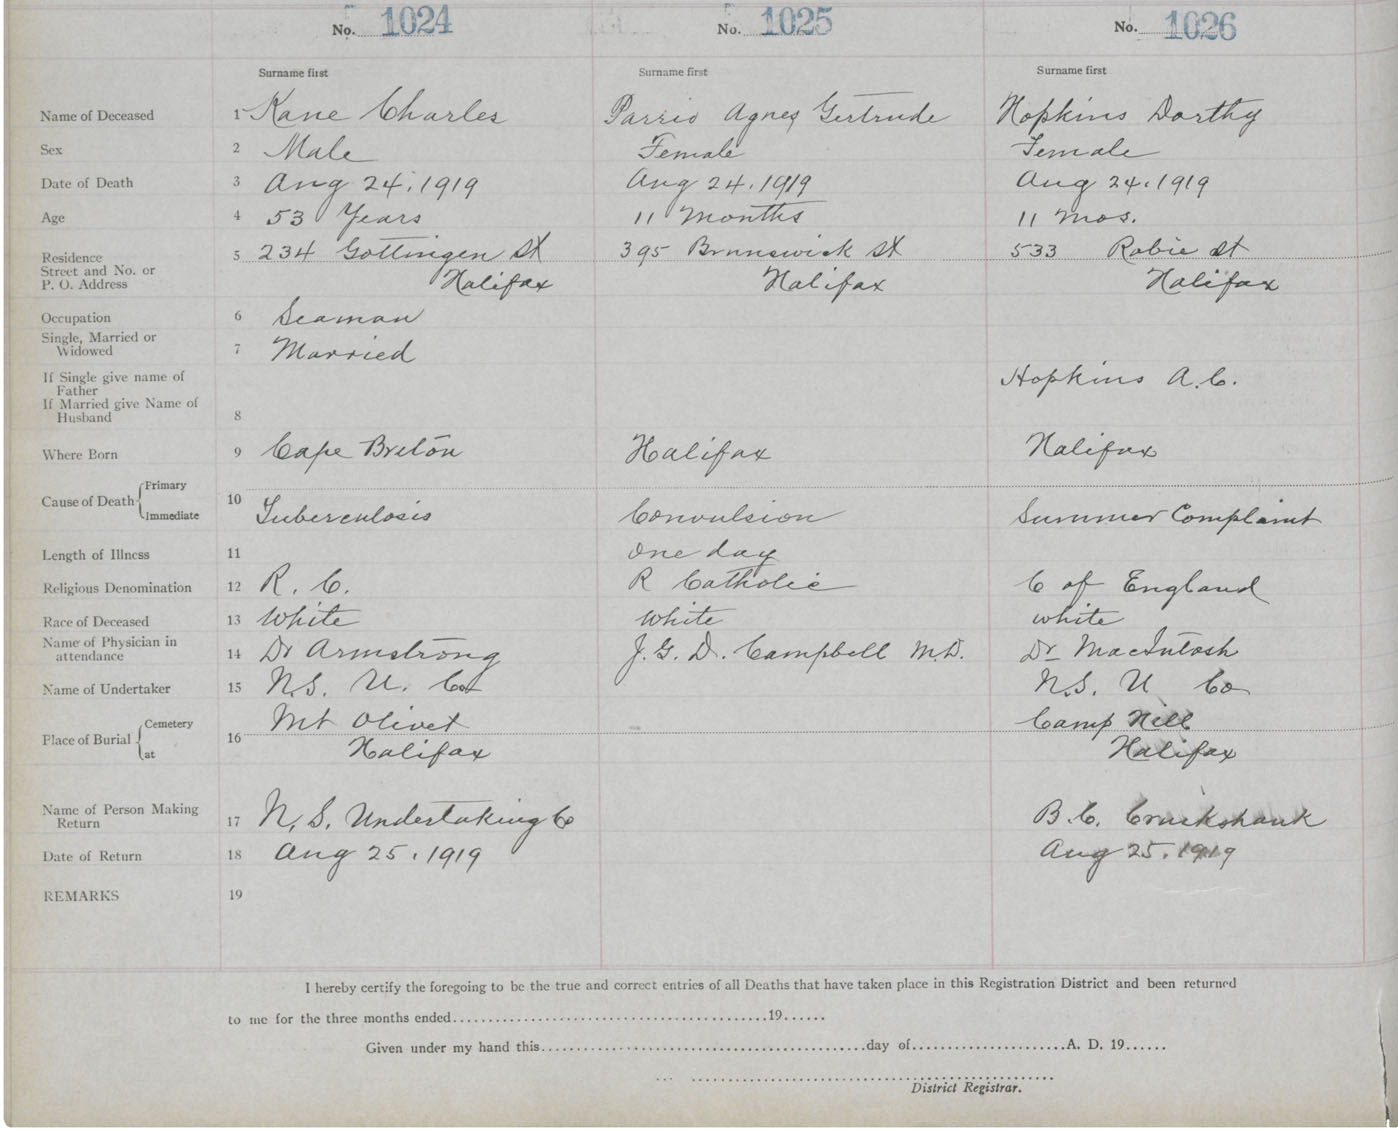 No. 1024 No. 1025 No. 1026
Surname first Surname first Surname first
Name of Deceased 1 Kane Charles Parris Agnes Gertrude Hopkins Dorthy
Sex 2 Male Female Female
Date of Death 3 Aug 24, 1919 Aug 24, 1919 Aug 24, 1919
Age 4 53 Years 11 Months 11 mos.
Residence
Street and No. or 5 234 Gottingen St 395 Brunswick St 533 Robie St
P. O. Address Halifax Halifax Halifax
Occupation 6 Seaman
Single, Married or
Widowed 7 Married
If Single give name of Hopkins A.C.
Father
If Married give Name of
Husband 8
Where Born 9 Cape Breton Halifax Halifax
Cause of Death Primary 10
Immediate Tuberculosis Convulsion Summer Complaint
Length of Illness 11 one day
Religious Denomination 12 R. C. R Catholic C of England
Race of Deceased 13 White White white
Name of Physician in
attendance 14 Dr Armstrong J. G. D. Campbell M.D. Dr MacIntosh
Name of Undertaker 15 N.S. U. Co N.S. U Co
Place of Burial Cemetery 16 Mt Olivet Camp Hill
at Halifax Halifax
Name of Person Making
Return 17 N. S. Undertaking Co B. C. Cruikshank
Date of Return 18 Aug 25, 1919 Aug 25, 1919
REMARKS 19
I hereby certify the foregoing to be the true and correct entries of all Deaths that have taken place in this Registration District and been returned
to me for the three months ended 19
Given under my hand this day of A. D. 19
District Registrar.